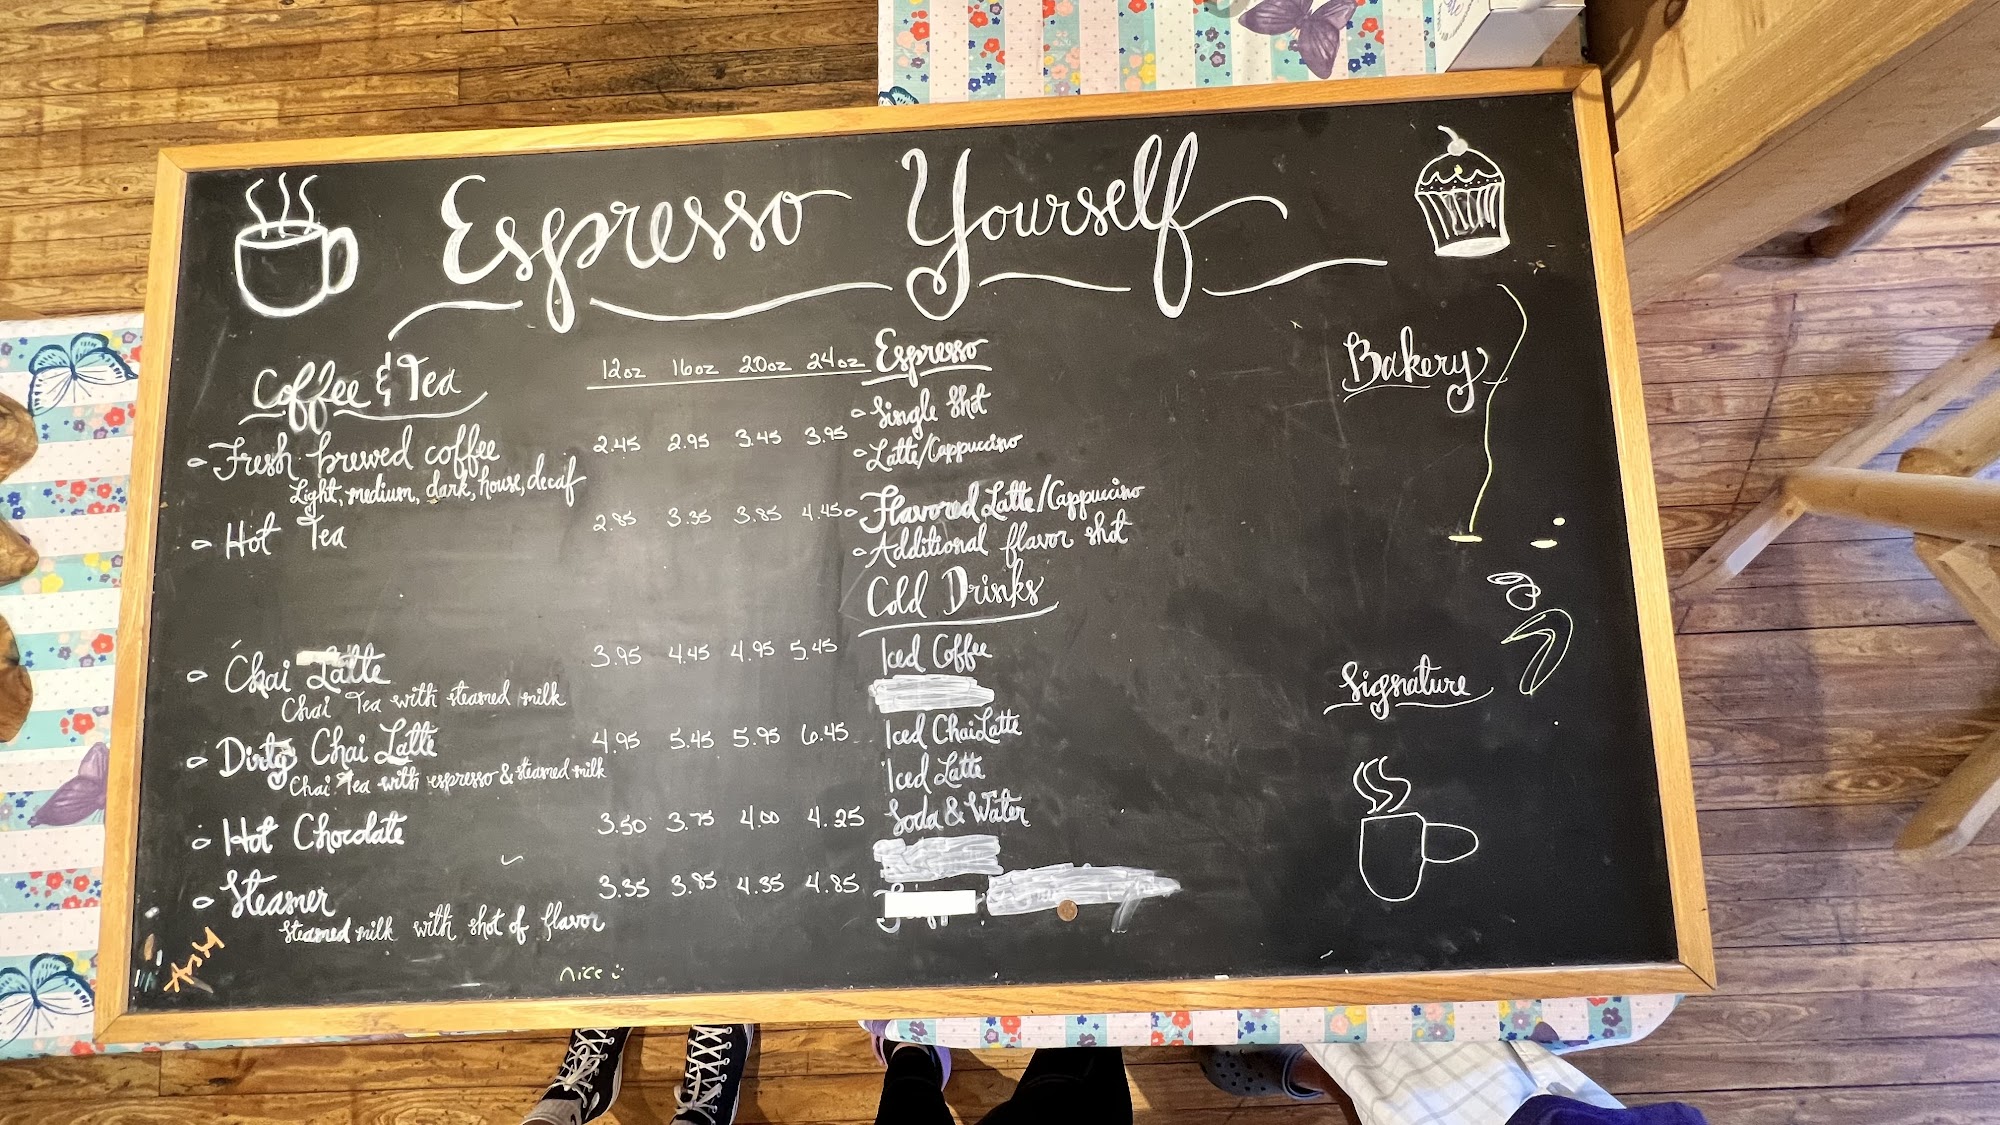 Espresso Yourself
Coffee & Tea
12oz 16oz 20oz 24oz
Fresh brewed coffee 2.45 2.95 3.45 3.95
Light, medium, dark, house, decaf
Hot Tea 2.85 3.35 3.85 4.45
Chai Latte 3.95 4.45 4.95 5.45
Chai Tea with steamed milk
Dirty Chai Latte 4.95 5.45 5.95 6.45
Chai Tea with espresso & steamed milk
Hot Chocolate 3.50 3.75 4.00 4.25
Steamer 3.35 3.85 4.35 4.85
steamed milk with shot of flavor
nice
Espresso
Single Shot
Latte/Cappuccino
Flavored Latte/Cappuccino
Additional flavor shot
Cold Drinks
Iced Coffee
Iced Chai Latte
Iced Latte
Soda & Water
Bakery
Signature